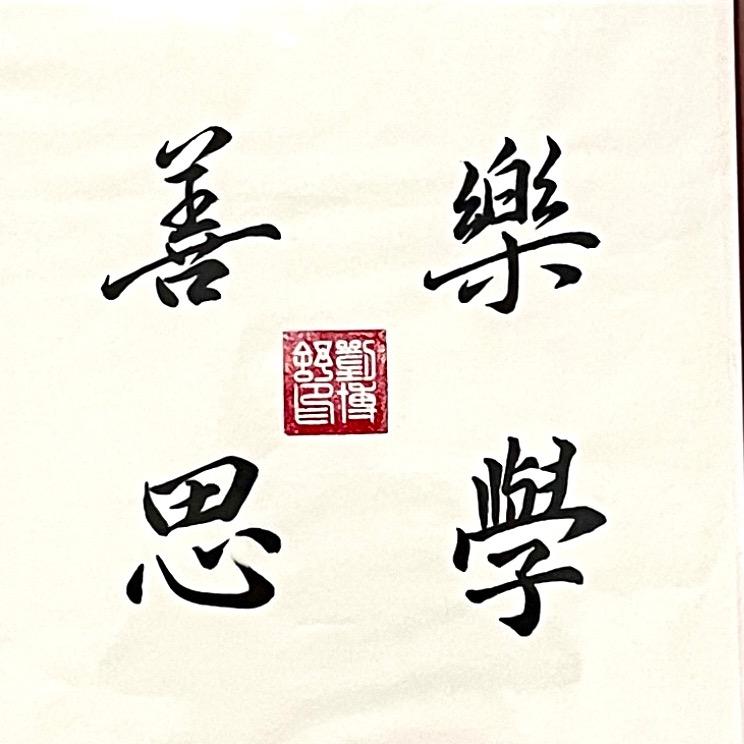 樂學
善思
劉博
舒印